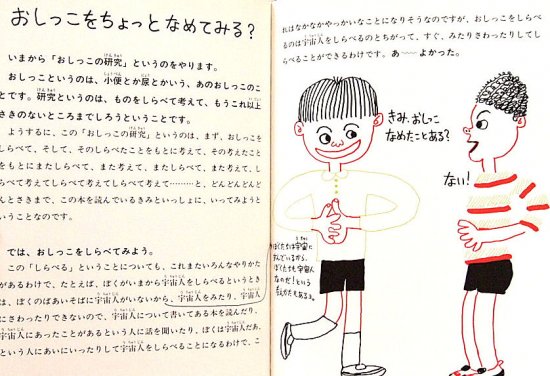 おしっこをちょっとなめてみる?
いまから「おしっこの研究」というのをやります。
おしっこというのは、小便とか尿とかいう、あのおしっこのこ
とです。研究というのは、ものをしらべて考えて、もうこれ以上
さきのないところまでしろうということです。
ようするに、この「おしっこの研究」というのは、まず、おしっこを
しらべて、そして、そのしらべたことをもとに考えて、その考えたこと
をもとにまたしらべて、また考えて、またしらべて、また考えて、し
らべて考えてしらべて考えてしらべて考えて………と、どんどんどんど
んとさきまで、この本を読んでいるきみといっしょに、いってみようと
いうことなのです。
では、おしっこをしらべてみよう。
この「しらべる」ということについても、これまたいろんなやりかた
があるわけで、たとえば、ぼくがいまから宇宙人をしらべるというとき
は、ぼくのあいそばに宇宙人がいないから、宇宙人をみたり、宇宙人
にさわったりできないので、宇宙人について書いてある本を読んだり、
宇宙人にあったことがあるという人に話を聞いたり、ぼくは宇宙人だあ、
という人にあいにいったりして宇宙人をしらべることになるわけで、こ
れはなかなかやっかいなことになりそうなのですが、おしっこをしらべ
るのは宇宙人をしらべるのとちがって、すぐ、みたりさわったりしてし
らべることができるわけです。あ——よかった。
きみ、おしっこ
なめたことある?
ない!
ぼくたちは宇宙に
すんでいるから、
ぼくたちも宇宙人
なのだ!という
かたもある。